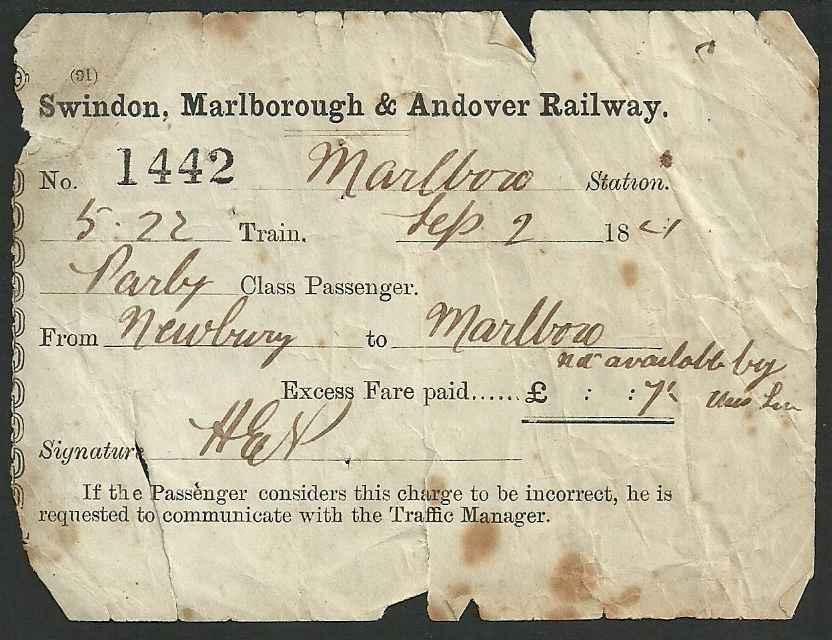 (91)
Swindon, Marlborough & Andover Railway.
No. 1442 Marlboro Station.
5.22 Train. Sep 2 18
Parly Class Passenger.
From Newbury to Marlboro
not available by
Excess Fare paid...... £ : : 7
this
Signature HEN
If the Passenger considers this charge to be incorrect, he is
requested to communicate with the Traffic Manager.